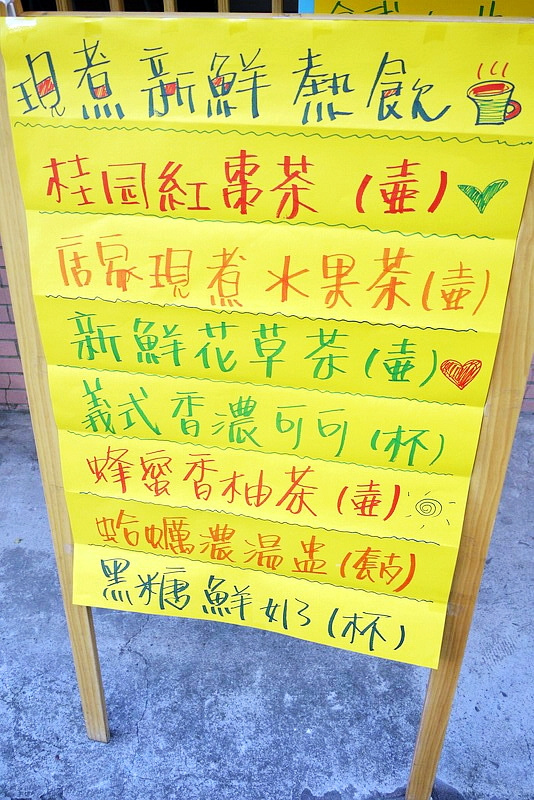 現煮新鮮熱飲
桂园紅棗茶(壺)
店家現煮水果茶(壺)
新鮮花草茶(壺)
義式香濃可可(杯)
蜂蜜香柚茶(壺)
蛤蠣濃湯盅(套)
黑糖鮮奶(杯)